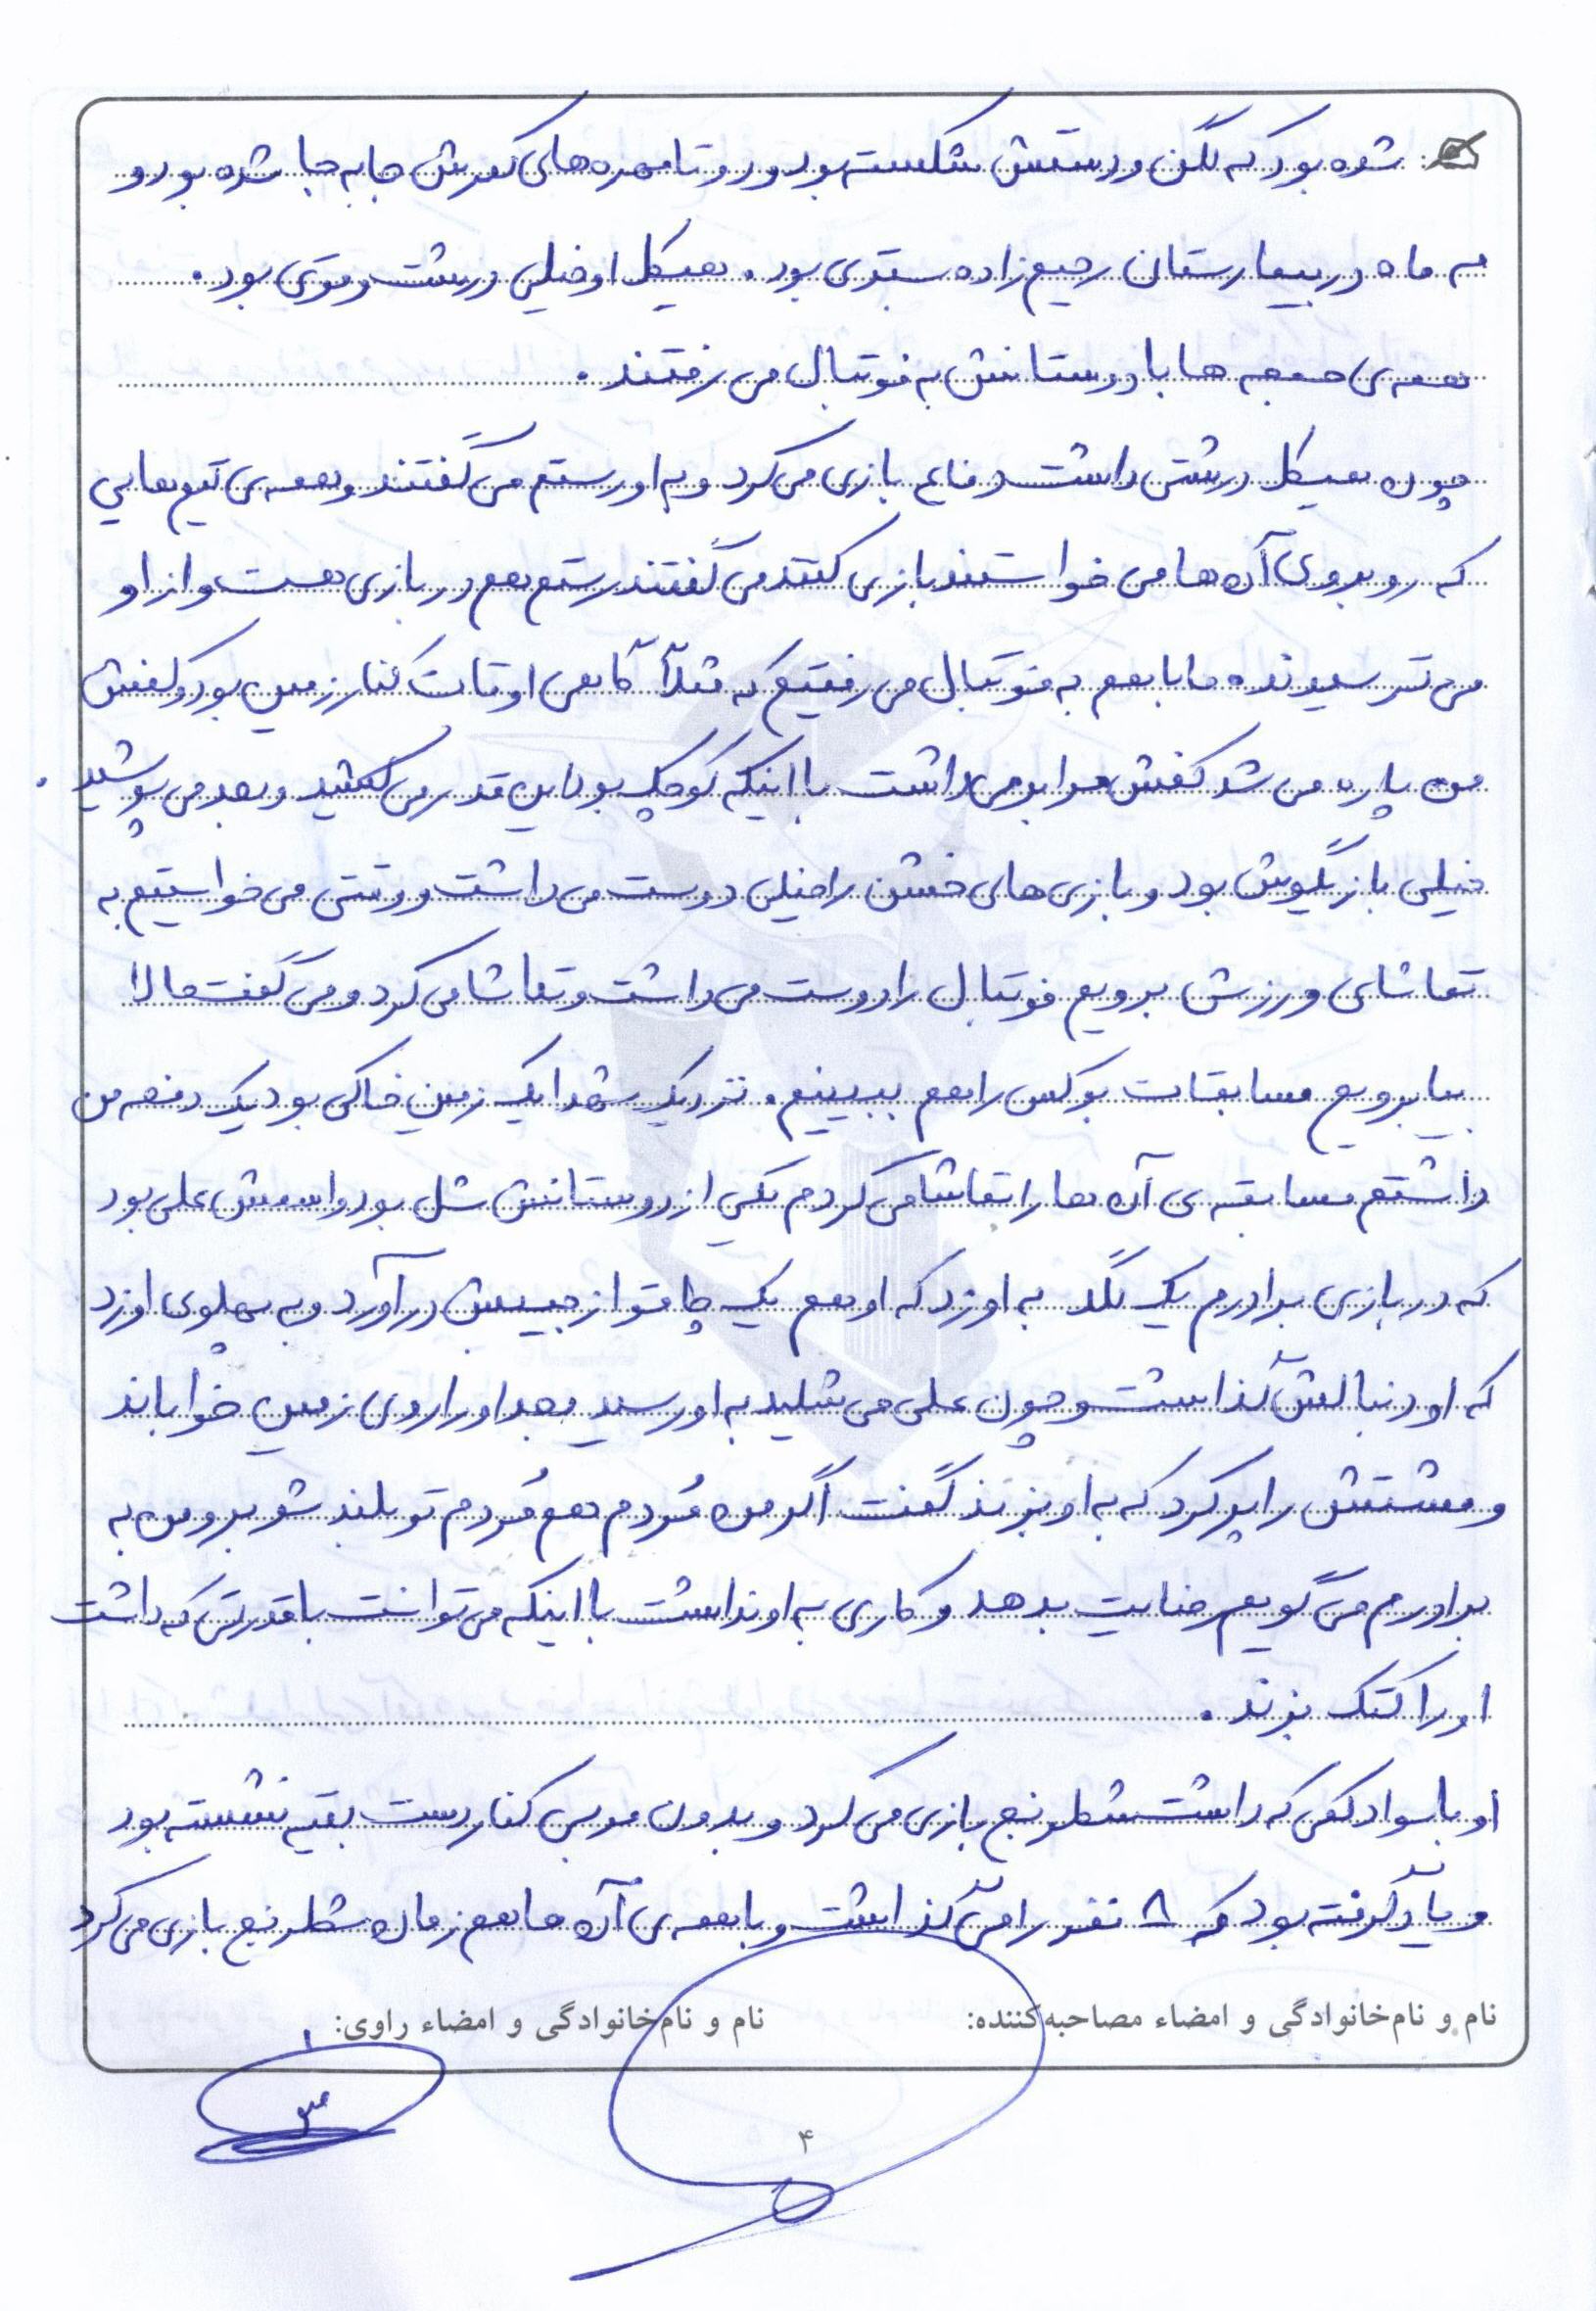 شده بود که لگن و دستش شکسته بود و دو تا مهره های کمرش جا به جا شده بود و
سه ماه در بیمارستان رحیم زاده بستری بود. هیکل او خیلی درشت و قوی بود.
همه ی جمعه ها با دوستانش به فوتبال می رفتند.
چون هیکل درشتی داشت دفاع بازی می کرد و به او رستم می گفتند و همه ی تیم هایی
که روبروی آن ها می خواستند بازی کنند می گفتند رستم هم در بازی هست و از او
می ترسیدند. ما با هم به فوتبال می رفتیم که مثلاً گاهی اوقات کنار زمین بود و کفش
من پاره می شد کفش مرا برمی داشت با اینکه کوچک بود این قدر می کشید و بعد می پوشید.
خیلی بازیگوش بود و بازی های خشن را خیلی دوست می داشت وقتی می خواستیم به
تماشای ورزش برویم فوتبال را دوست می داشت و تماشا می کرد و می گفت حالا
بیا برویم مسابقات بوکس را هم ببینیم. نزدیک شهدا یک زمین خاکی بود یک دفعه من
داشتم مسابقه ی آن ها را تماشا می کردم یکی از دوستانش شل بود و اسمش علی بود
که در بازی برادرم یک لگد به او زد که او هم یک چاقو از جیبش در آورد و به پهلوی او زد
که او دنبالش گذاشت و چون علی می شلید به او رسید و بعد او را روی زمین خواباند
و مشتش را پر کرد که به او بزند گفت اگر من مُردم هم مُردم تو بلند شو برو من به
برادرم می گویم رضایت بدهد و کاری به او نداشت با اینکه می توانست با قدرتی که داشت
او را کتک بزند.
او با سواد کمی که داشت شطرنج بازی می کرد و بدون مربی کنار دست بقیه نشسته بود
و یاد گرفته بود که ۸ نفر را می گذاشت و با همه ی آن ها هم زمان شطرنج بازی می کرد
نام و نام‌خانوادگی و امضاء مصاحبه‌کننده: نام و نام‌خانوادگی و امضاء راوی:
۴